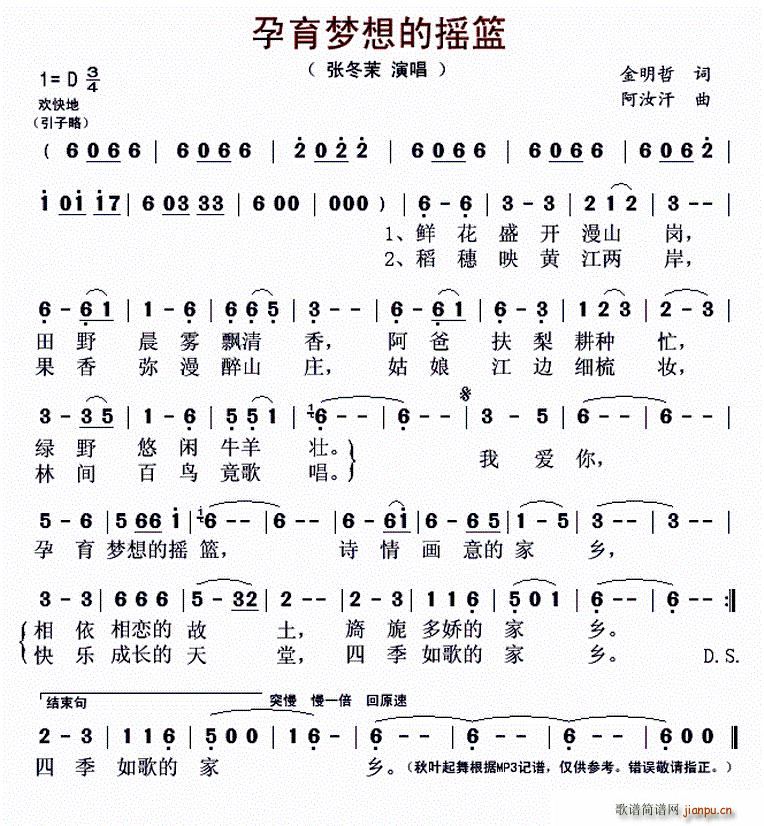 孕育梦想的摇篮
（ 张冬茉 演唱 ）
1= D 3/4
金明哲 词
欢快地
阿汝汗 曲
（引子略）
( 6 0 6 6 | 6 0 6 6 | 2 0 2 2 | 6 0 6 6 | 6 0 6 6 | 6 0 6 2 |
1 0 1 1 7 | 6 0 3 3 3 | 6 0 0 | 0 0 0 ) | 6 - 6 | 3 - 3 | 2 1 2 | 3 - - |
1、鲜 花 盛 开 漫山 岗，
2、稻 穗 映 黄 江两 岸，
6 - 6 1 | 1 - 6 | 6 6 5 | 3 - - | 6 - 6 1 | 6 - 3 | 1 2 3 | 2 - 3 |
田 野 晨 雾 飘清 香， 阿 爸 扶 梨 耕种 忙，
果 香 弥 漫 醉山 庄， 姑 娘 江 边 细梳 妆，
3 - 3 5 | 1 - 6 | 5 5 1 | 1 6 - - | 6 - - | 3 - 5 | 6 - - | 6 - - |
绿 野 悠 闲 牛羊 壮。 我 爱 你，
林 间 百 鸟 竟歌 唱。
5 - 6 | 5 6 6 i | i 6 - - | 6 - - | 6 - 6 i | 6 - 6 5 | 1 - 5 | 3 - - | 3 - - |
孕 育 梦想的摇 篮， 诗 情 画 意的 家 乡，
3 - 3 | 6 6 6 | 5 - 3 2 | 2 - - | 3 - 2 | 1 1 6 | 5 0 1 | 6 - - | 6 - - :||
相 依 相恋的 故 土， 旖 旎 多娇的 家 乡。
快 乐 成长的 天 堂， 四 季 如歌的 家 乡。 D.S.
结束句 突慢 慢一倍 回原速
2 - 3 | 1 1 6 | 5 0 0 | 1 6 - | 6 - - | 6 - - | 6 - - | 6 0 0 ||
四 季 如歌的 家 乡。（秋叶起舞根据MP3记谱，仅供参考。错误敬请指正。）
歌谱简谱网 jianpu.cn